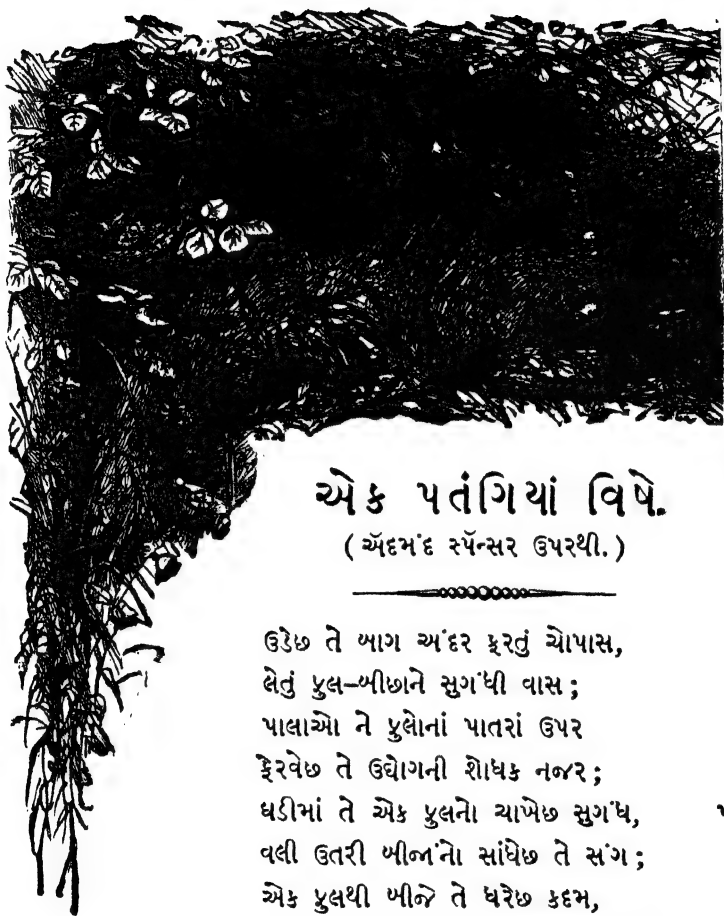 એક પતંગિયાં વિષે.
(ઍદમંદ સ્પૅન્સર ઉપરથી.)
ઉડેછ તે બાગ અંદર ફરતું ચોપાસ,
લેતું ફુલ-બીછાને સુગંધી વાસ;
પાલાઓ ને ફુલોનાં પાતરાં ઉપર
ફેરવેછ તે ઉદ્યોગની શોધક નજર;
ઘડીમાં તે એક ફુલનો ચાખેછ સુગંધ,
વલી ઉતરી બીજાંનો સાંધેછ તે સંગ;
એક ફુલથી બીજે તે ધરેછ કદમ,